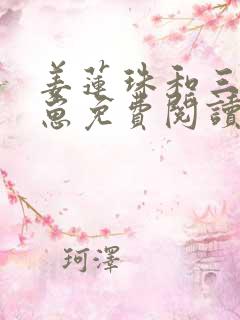 姜蓮珠和三
崽免費閱讀
珂澤